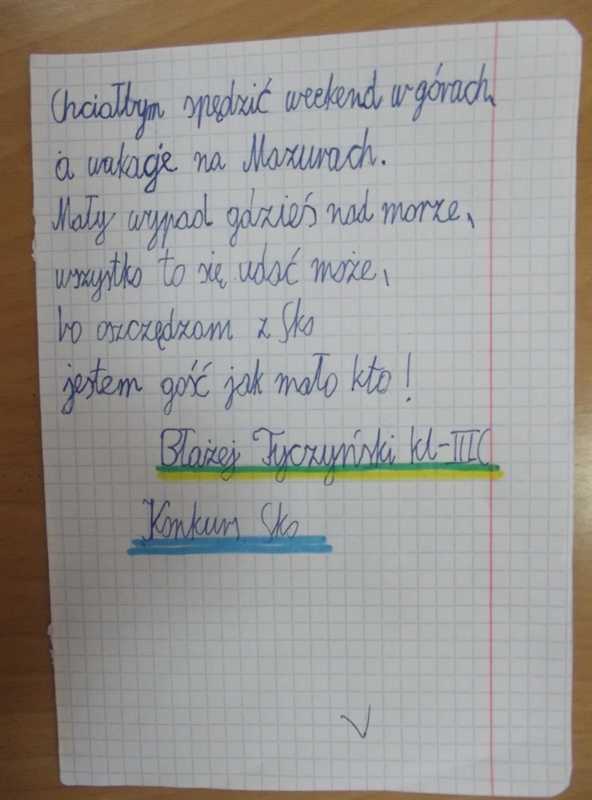 Chciałbym spędzić weekend w górach,
a wakacje na Mazurach.
Mały wypad gdzieś nad morze,
wszystko to się udać może,
bo oszczędzam z Sko
jestem gość jak mało kto!
Błażej Tyczyński kl-IIIC
Konkurs Sko